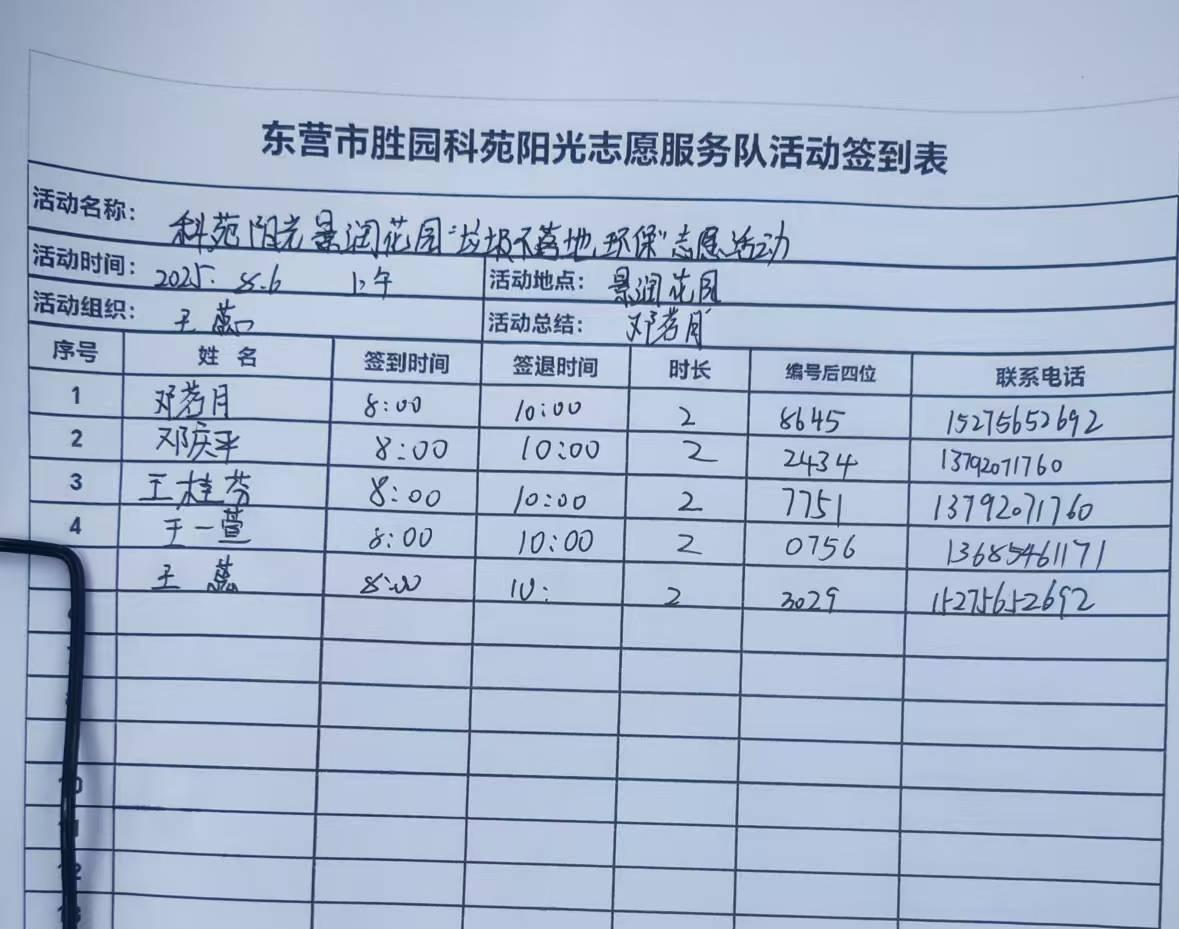 东营市胜园科苑阳光志愿服务队活动签到表
活动名称: 科苑阳光景润花园“垃圾不落地,环保”志愿活动
活动时间: 2025. 8.6 上午 活动地点: 景润花园
活动组织: 王 活动总结: 邓茗月
序号 姓 名 签到时间 签退时间 时长 编号后四位 联系电话
1 邓茗月 8:00 10:00 2 8645 15275652692
2 邓庆平 8:00 10:00 2 2434 13792071760
3 王桂芬 8:00 10:00 2 7751 13792071760
4 王一萱 8:00 10:00 2 0756 13685461171
王 8:00 10: 2 3029 15275652692
10
11
12
13